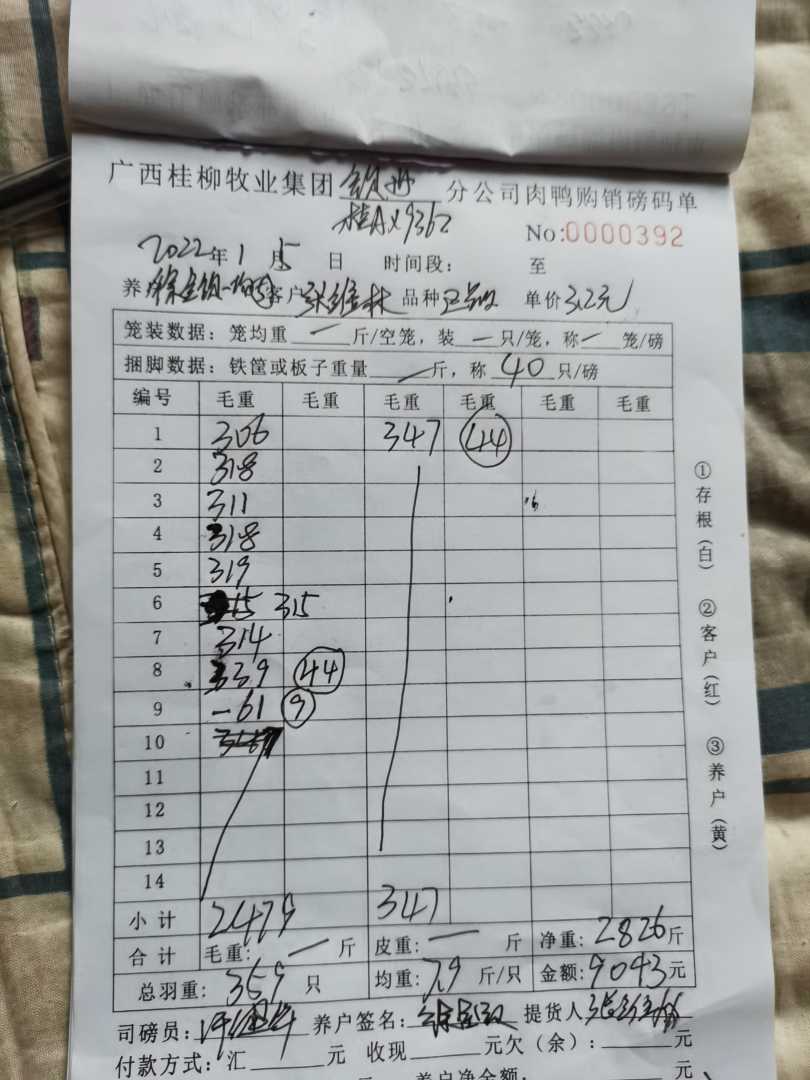 广西桂柳牧业集团 分公司肉鸭购销磅码单
桂A×9362
No:0000392
2022年1月5日 时间段: 至
养户 客户 张维林 品种 正品 单价 3.2元
笼装数据: 笼均重 一 斤/空笼, 装 一 只/笼, 称 一 笼/磅
捆脚数据: 铁筐或板子重量 一 斤, 称 40 只/磅
编号 毛重 毛重 毛重 毛重 毛重 毛重
1 306 347 44
2 318
3 311
4 318
5 319
6 315 315
7 314
8 339 44
9 -61 9
10
11
12
13
14
小计 2479 347
合计 毛重: 一 斤 皮重: 一 斤 净重: 2826斤
总羽重: 359 只 均重: 7.9 斤/只 金额: 9043元
司磅员: 养户签名: 提货人
付款方式: 汇 元 收现 元欠(余): 元
养户净金额: 元
①存根(白) ②客户(红) ③养户(黄)